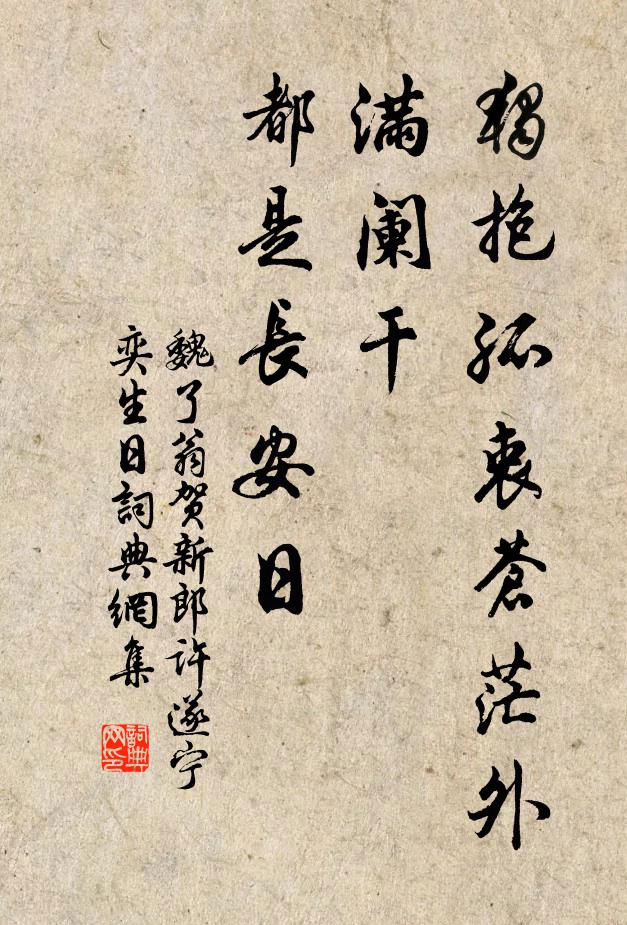 獨抱孤衷蒼茫外
滿闌干
都是長安日
魏了翁賀新郎許遂宁
奕生日詞典網集
詞典
网印